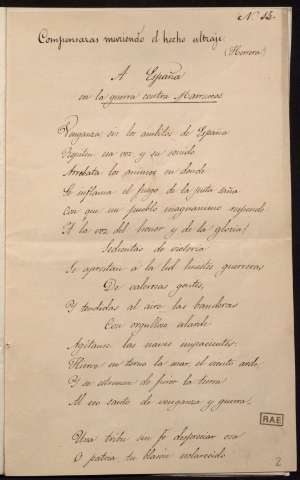 N.º 12.
Compensarás muriendo el hecho ultraje.
(Herrera)
A España
en la guerra contra Marruecos
Venganza en los ámbitos de España
Repiten una voz y su sonido
Arrebata los ánimos en donde
Se inflama el fuego de la justa saña
Con que un pueblo magnánimo responde
A la voz del honor y de la gloria!
Sedientas de victoria
Se aprestan a la lid huestes guerreras
De valerosas gentes,
Y tendidas al aire las banderas
Con orgulloso alarde
Agítanse las naves impacientes.
Hierve en torno la mar, el viento arde,
Y se estremece de furor la tierra
Al son santo de venganza y guerra.
Una tribu sin fe despreciar osa
O patria tu blasón esclarecido
RAE
2